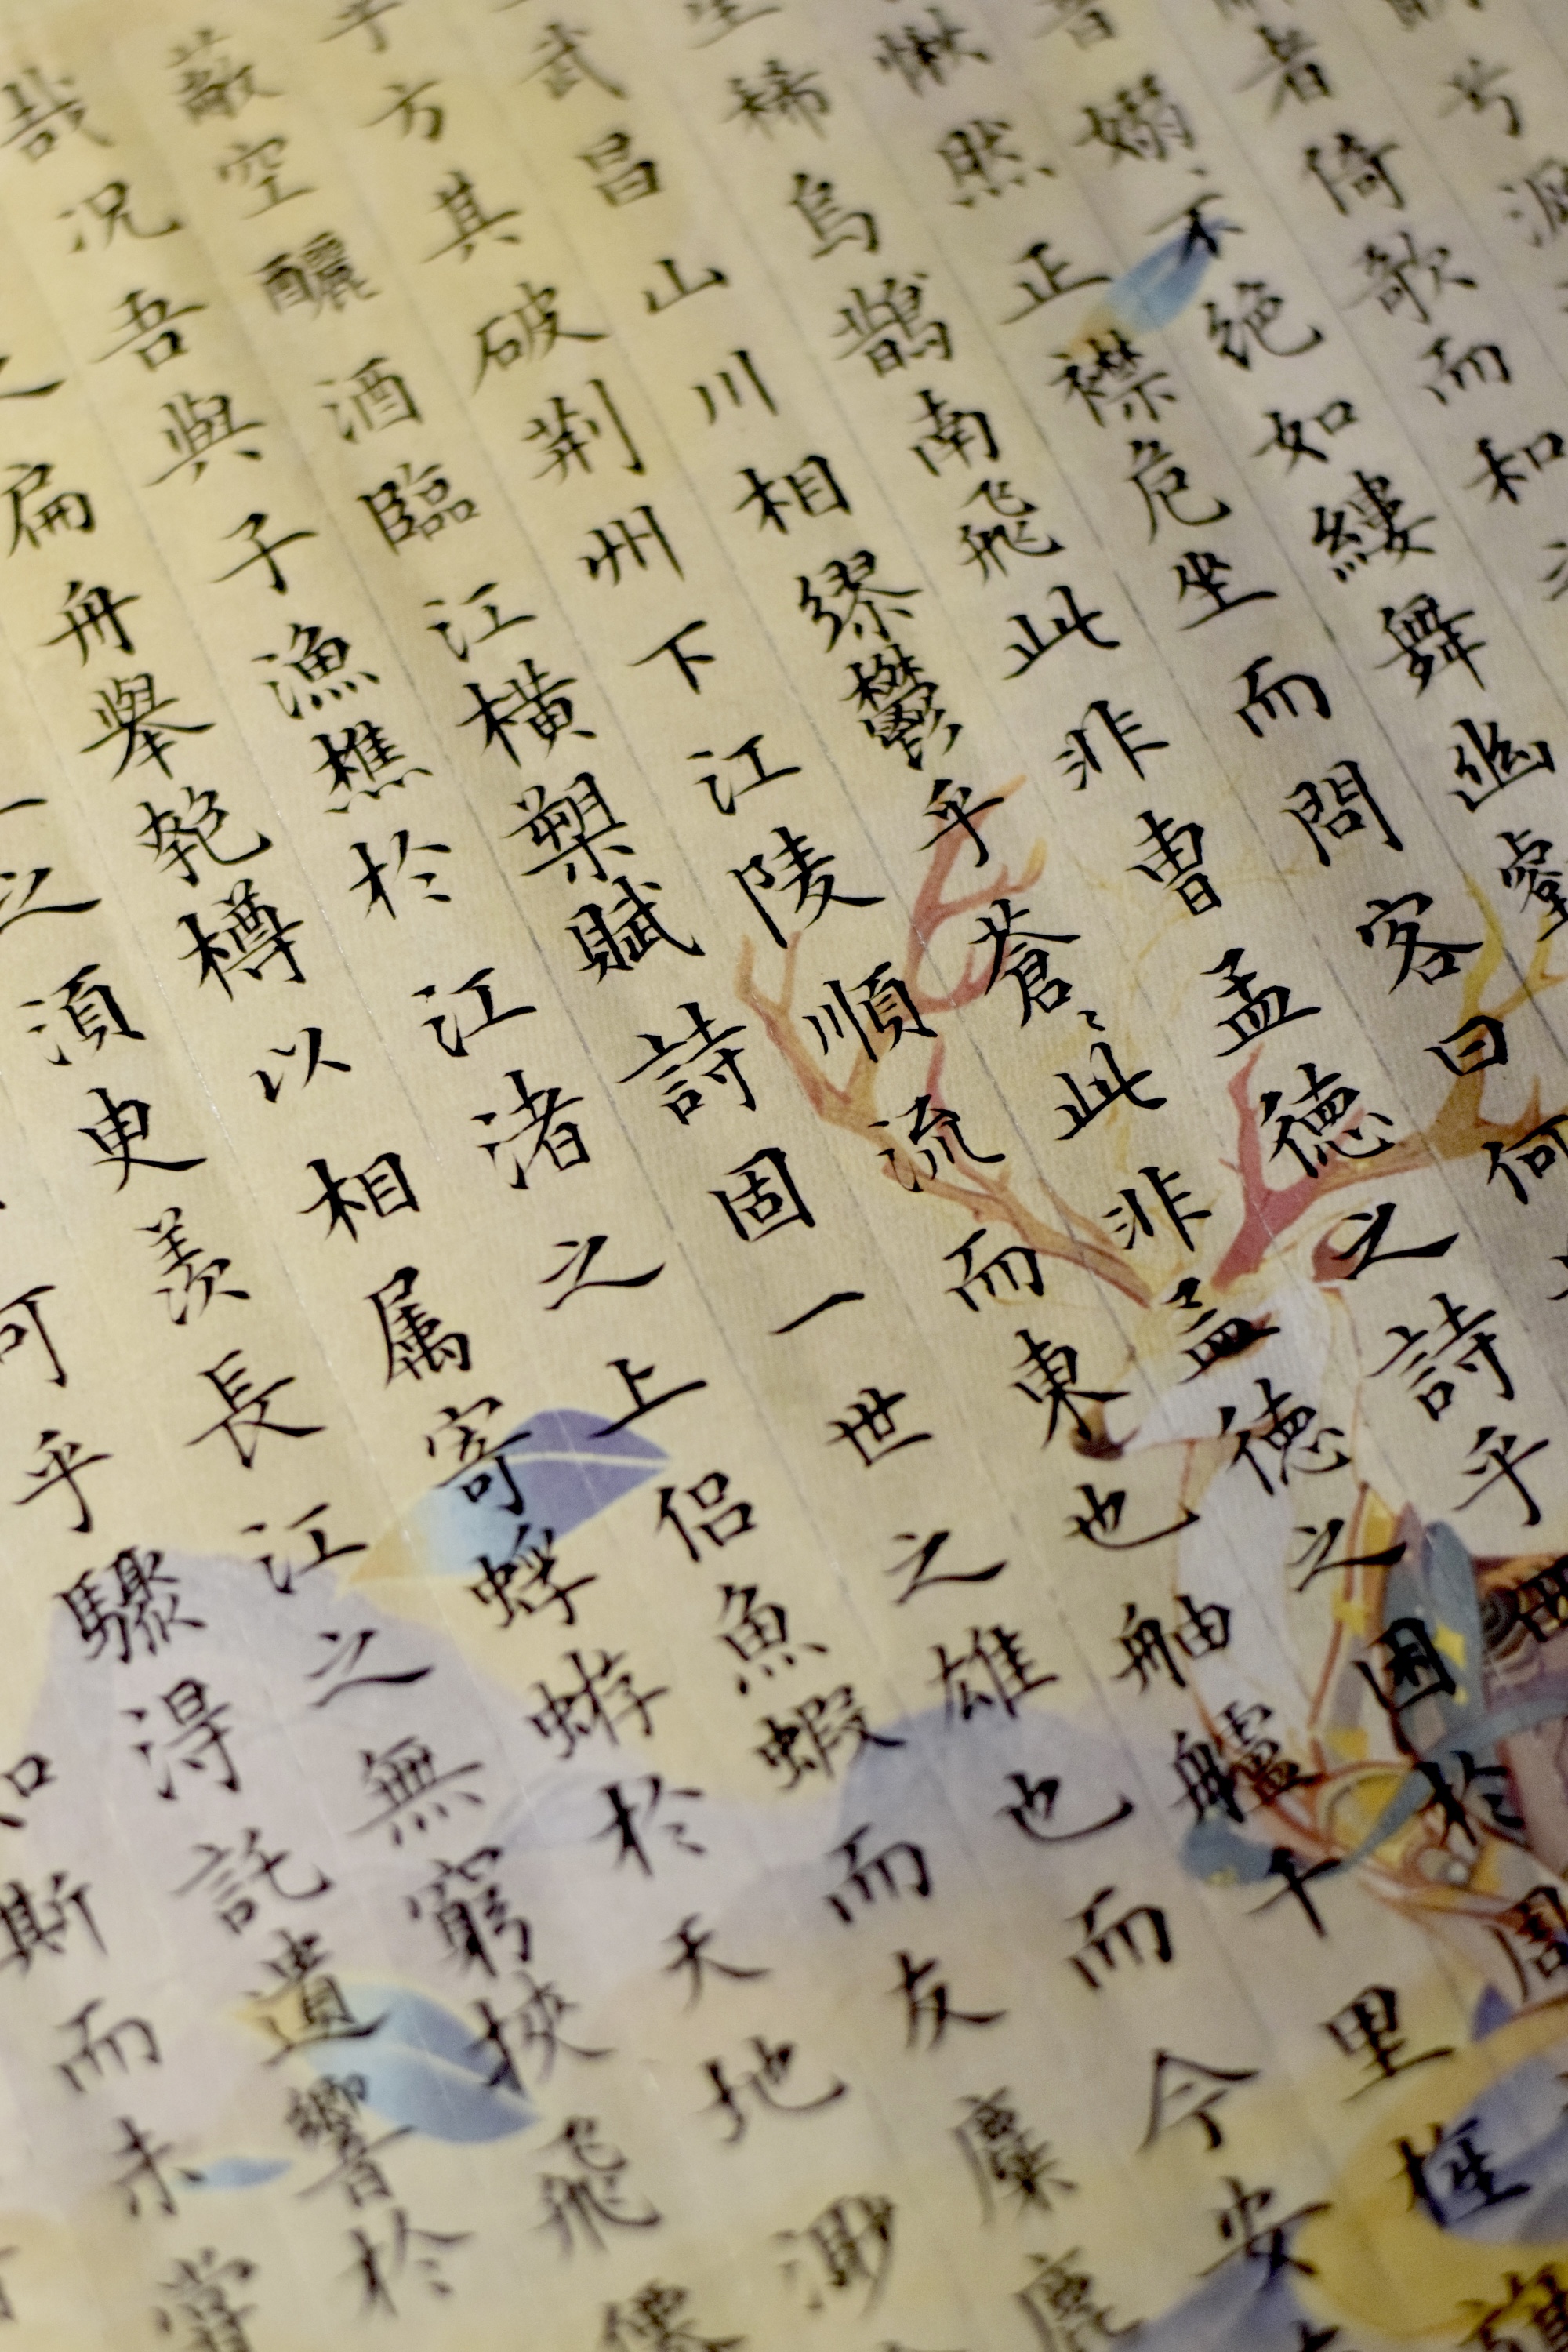 兮
者倚歌而和
音嫋ミ不絕如縷舞幽壑
愀然正襟危坐而問客曰何
稀烏鵲南飛此非曹孟徳之詩乎西
武昌山川相繆鬱乎蒼ミ此非孟徳之困於周
方其破荆州下江陵順流而東也舳艫千里旌
蔽空釃酒臨江横槊賦詩固一世之雄也而今安
哉況吾與子漁樵於江渚之上侣魚蝦而友麋鹿
扁舟舉匏樽以相属寄蜉蝣於天地渺
之須臾羨長江之無窮挾飛僊
可乎驟得託遺響於
知斯而未嘗